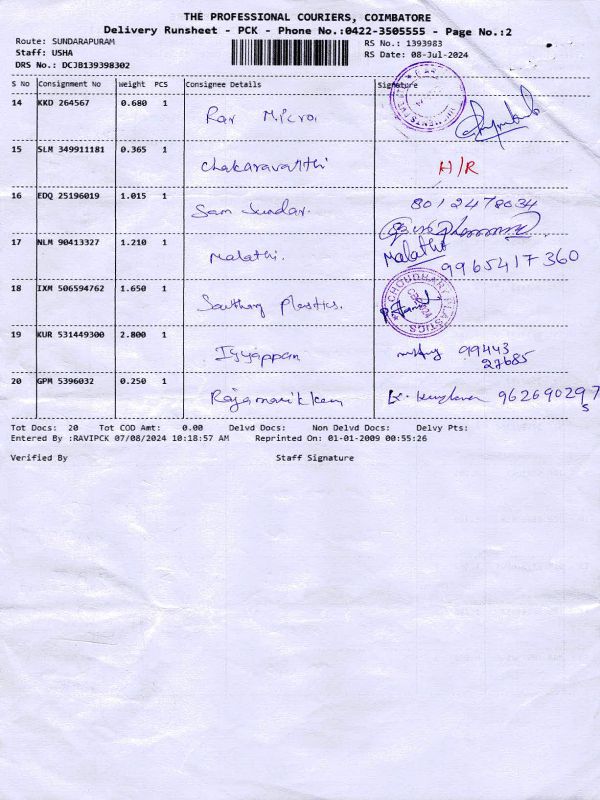 THE PROFESSIONAL COURIERS, COIMBATORE
Delivery Runsheet - PCK - Phone No.:0422-3505555 - Page No.:2
Route: SUNDARAPURAM
Staff: USHA
DRS No.: DCJB139398302
RS No.: 1393983
RS Date: 08-Jul-2024
S No Consignment No Weight PCS Consignee Details Signature
14 KKD 264567 0.680 1 Rar Micro,
15 SLM 349911181 0.365 1 Chakaravarthi H/R
16 EDQ 25196019 1.015 1 Sam Sundar. 8012478034
17 NLM 90413327 1.210 1 Malathi. Malathi 9965417360
18 IXM 506594762 1.650 1 Southing Plastics. CHOUDHARY PLASTICS
19 KUR 531449300 2.800 1 Iyyappan 99443
27685
20 GPM 5396032 0.250 1 Rajamanikkam 962690297
5
Tot Docs: 20 Tot COD Amt: 0.00 Delvd Docs: Non Delvd Docs: Delvy Pts:
Entered By :RAVIPCK 07/08/2024 10:18:57 AM Reprinted On: 01-01-2009 00:55:26
Verified By Staff Signature